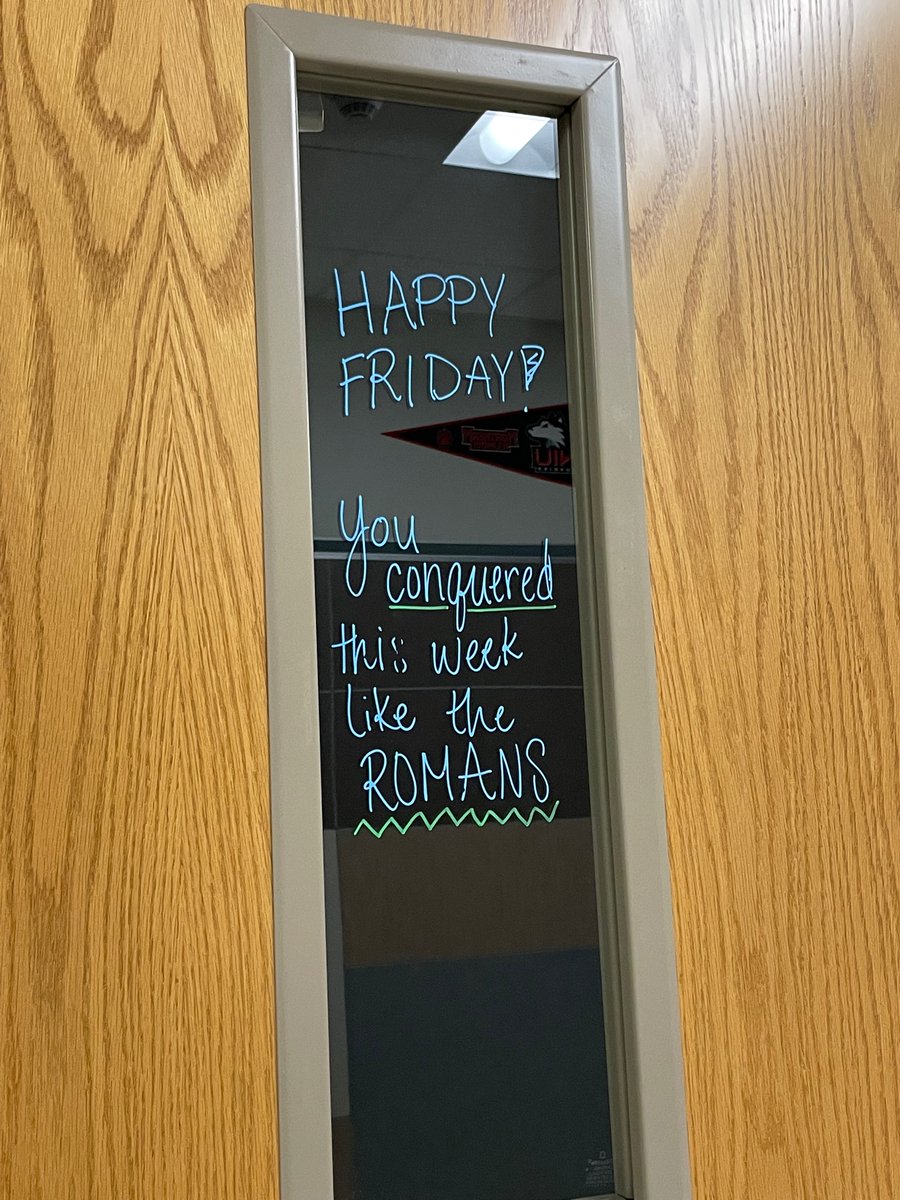 HAPPY
FRIDAY!
You
conquered
this week
like the
ROMANS